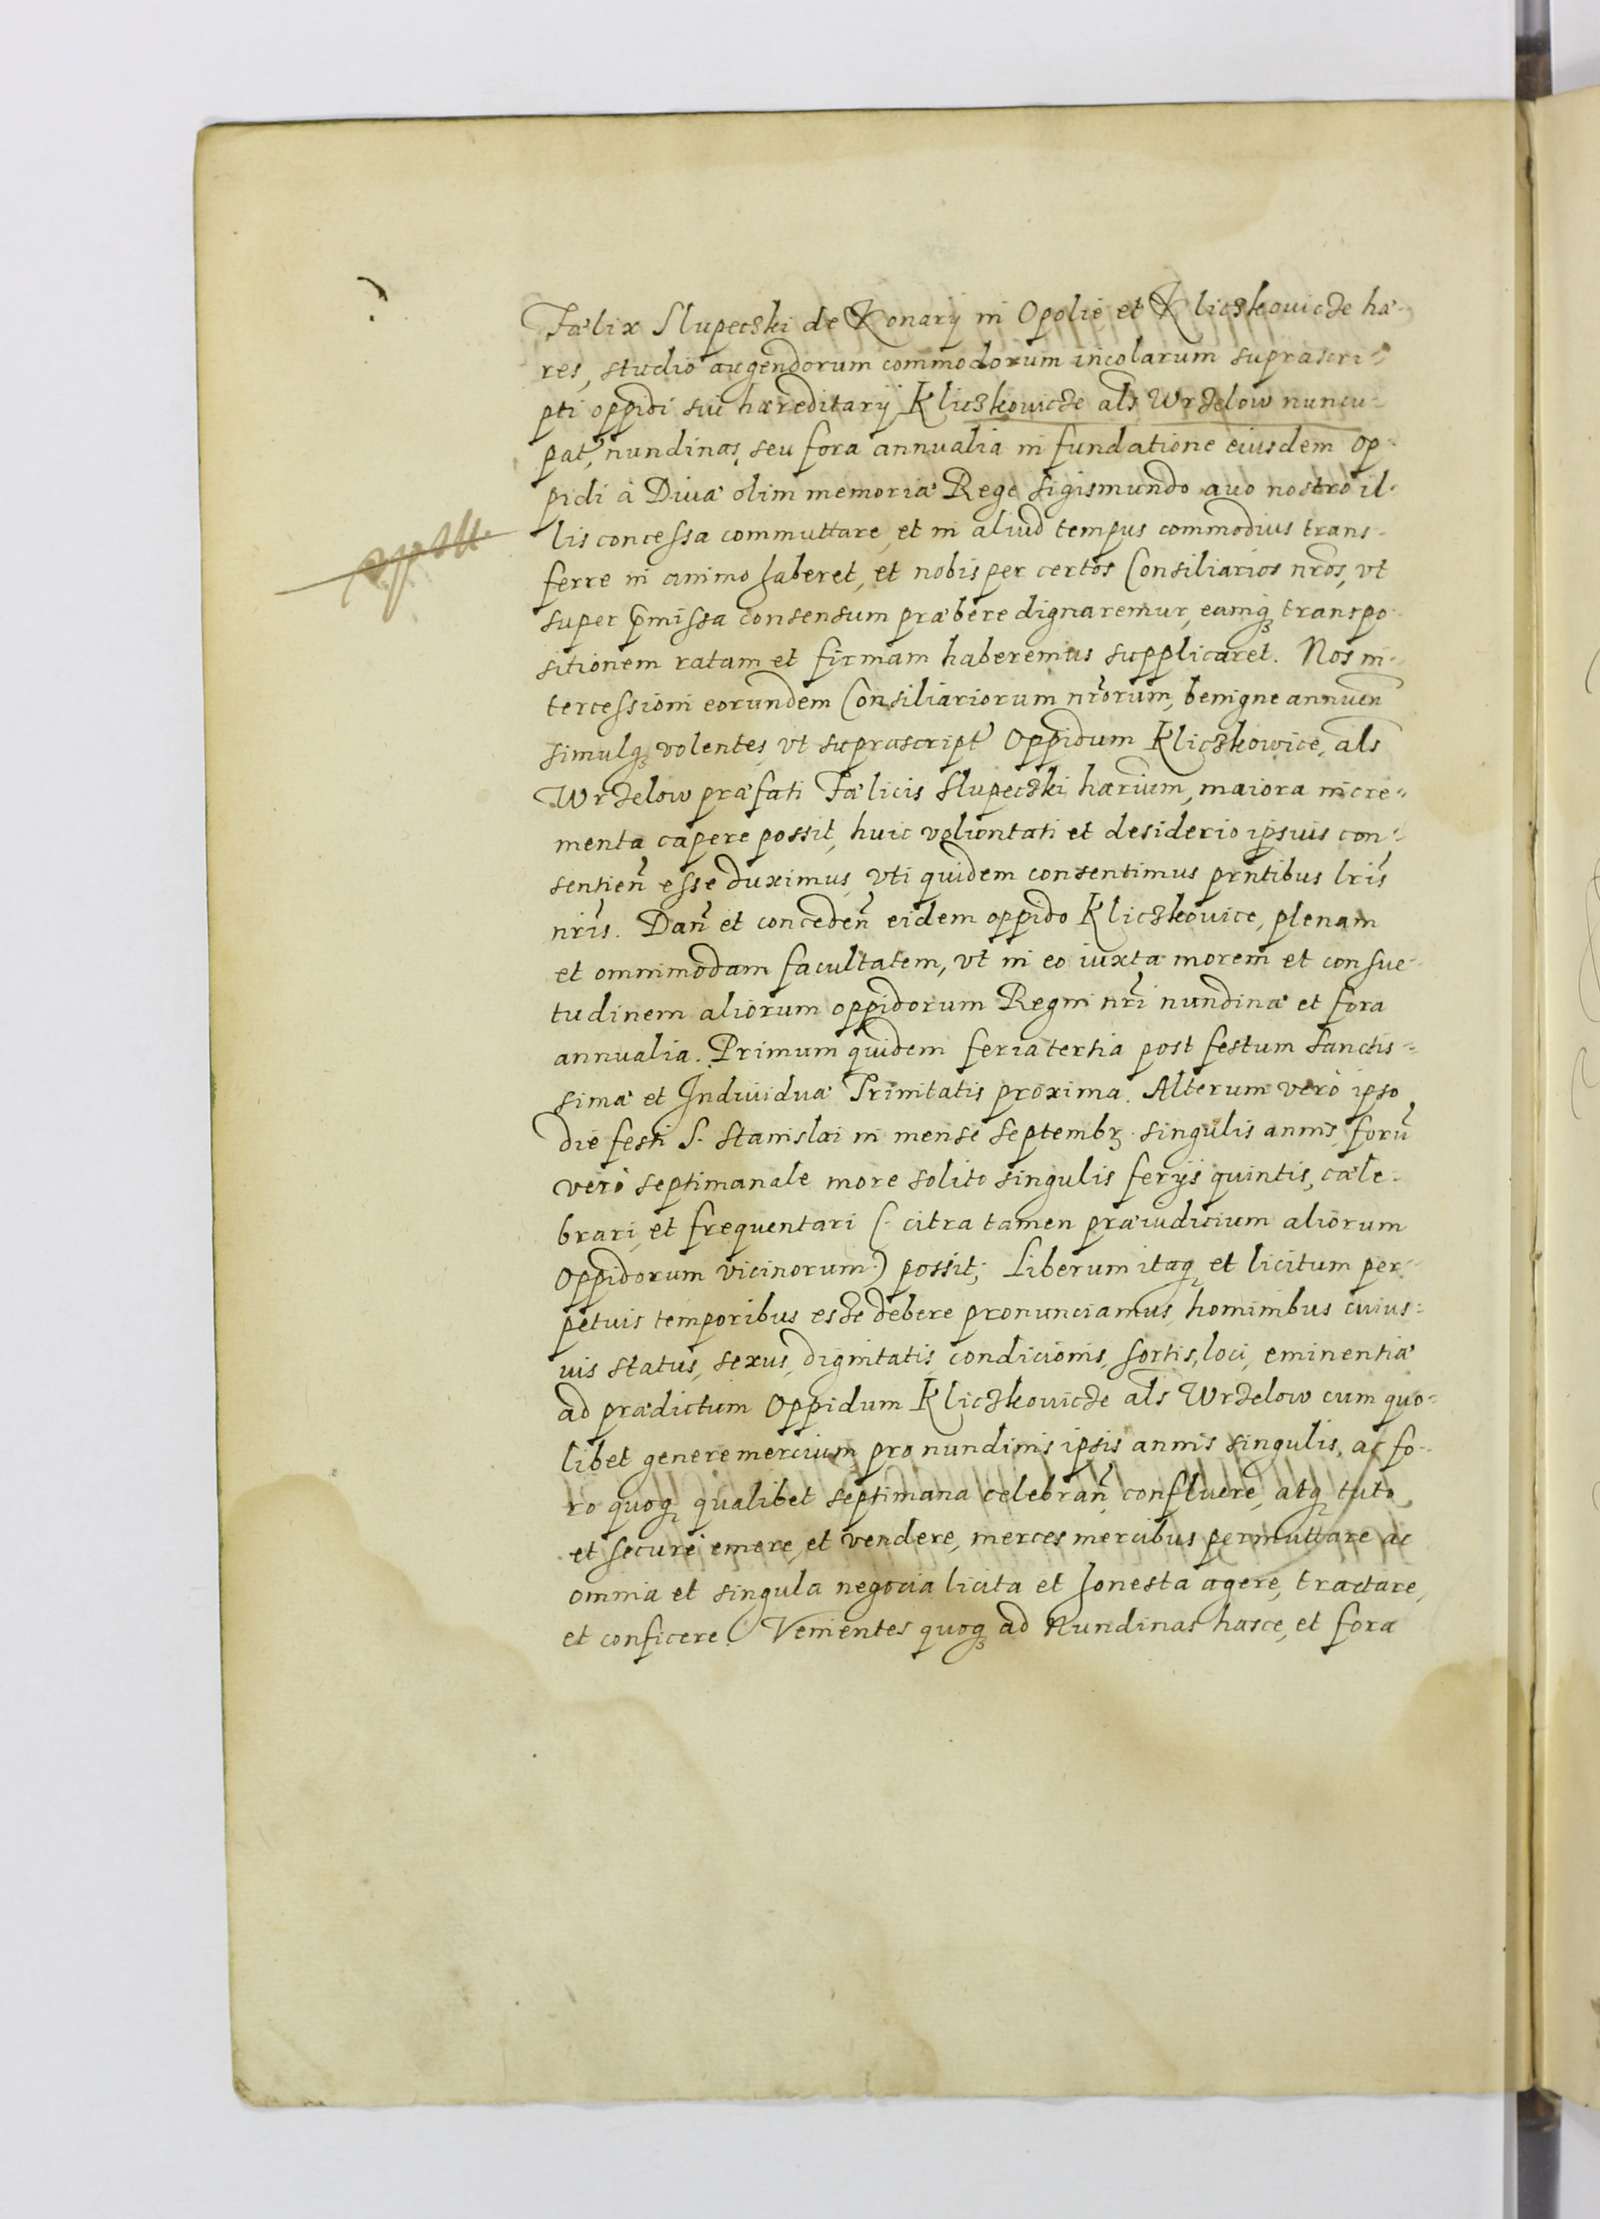 Fælix Slupeczki de Konarÿ in Opolie et Kliczkouicze hæ-
res, studio augendorum commodorum incolarum suprascri-
pti oppidi sui hæreditarÿ Kliczkouicze als Wrzelow nuncu-
pat, nundinas, seu fora annualia in fundatione eiusdem op-
pidi à Diuæ olim memoriæ Rege Sigismundo auo nostro il-
lis concessa commuttare, et in aliud tempus commodius trans-
ferre in animo haberet, et nobis per certos Consiliarios nros, vt
super pmissa consensum præbere dignaremur, eamq transpo
sitionem ratam et firmam haberemus supplicaret. Nos in-
tercessioni eorundem Consiliariorum nrorum, benigne annuen
simulq volentes, vt suprascript Oppidum Kliczkowice, als
Wrzelow præfati Fælicis Slupeczki hærium, maiora incre-
menta capere possit, huic voluntati et desiderio ipsuis con-
sentien esse duximus, vti quidem consentimus prntibus lris
nris. Dan et conceden eidem oppido Kliczkouice, plenam
et omnimodam facultatem, vt in eo iuxta morem et consue-
tudinem aliorum oppidorum Regni nri nundinæ et fora
annualia. Primum quidem feria tertia post festum Sanctis-
simæ et Indiuiduæ Trinitatis proxima. Alterum verò ipso
die festi S. Stanislai in mense Septembr singulis annis, foru
verò septimanale more solito singulis ferÿs quintis, cæle-
brari, et frequentari (: citra tamen præiudicium aliorum
Oppidorum vicinorum:) possit; Liberum itaq et licitum per-
petuis temporibus esse debere pronunciamus, hominibus cuius-
uis status, sexus, dignitatis condicionis, sortis, loci, eminentiæ
ad prædictum Oppidum Kliczkouicze als Wrzelow cum quo-
libet genere mercium pro nundinis ipsis annis singulis, ac fo-
ro quoq qualibet septimana celebran confluere, atq tuto
et securè emere, et vendere, merces mercibus permuttare ac
omnia et singula negocia licita et honesta agere, tractare,
et conficere. Venientes quoq ad Nundinas hasce, et fora